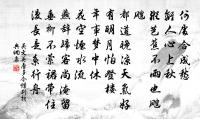 何處合成愁
離人心上秋
縱芭蕉不雨也颼
都道晚涼天氣好
有明月怕登樓
年事夢中休
花空煙水流
燕辭歸客尚淹留
垂柳不縈裙帶住
漫長是系行舟
吳文英唐多令惜別